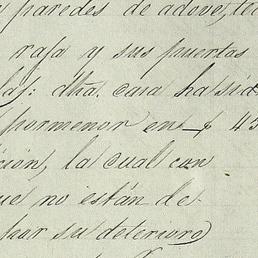 y paredes de adove, te
rafa y sus puertas
las: dha. casa ha sid
pormenor en $ 45
ción, la cual con
ue no están de
har su deterioro